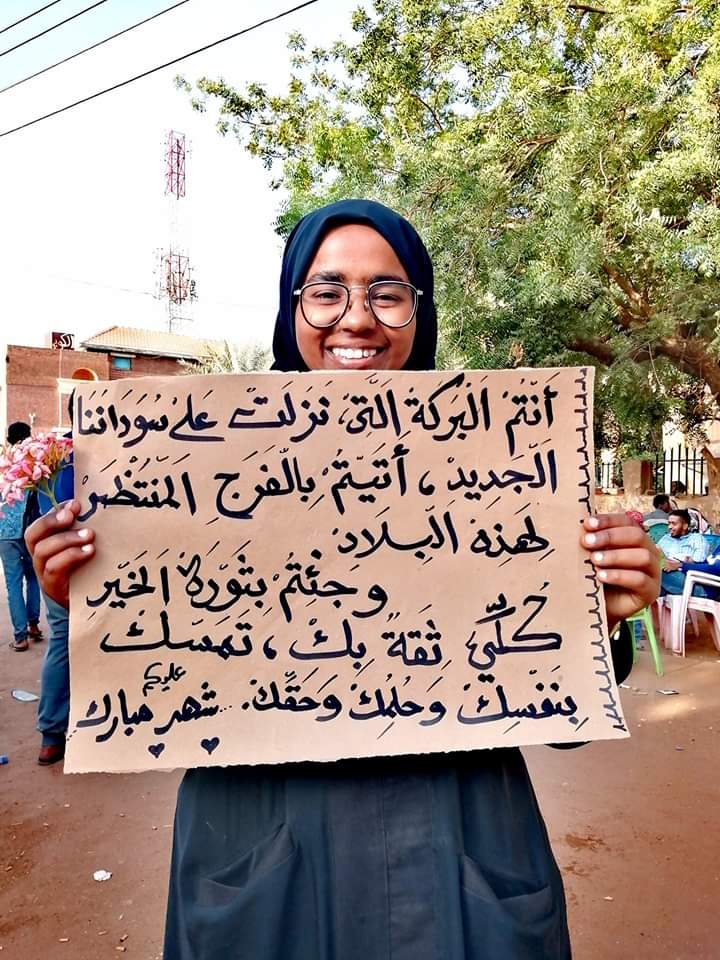 أَنْتُمْ الْبَرَكَةُ الَّتِى، نَزَلَتْ عَلى سُودَانِنَا
الْجَدِيدْ، أَتَيْتُمْ بِالْفَرَجِ الْمُنْتْظَرْ
لِهَذِهْ الْبِلَادِ
وَجِئْتُمْ بِثَوْرَةْ الْخَيْرِ
كُلِّي ثَقَةٌ بِكْ، تَمَسّك
بِنَفْسِكْ وَحُلُمِكْ وَحَقَّكْ... شهر مبارك
عليكم